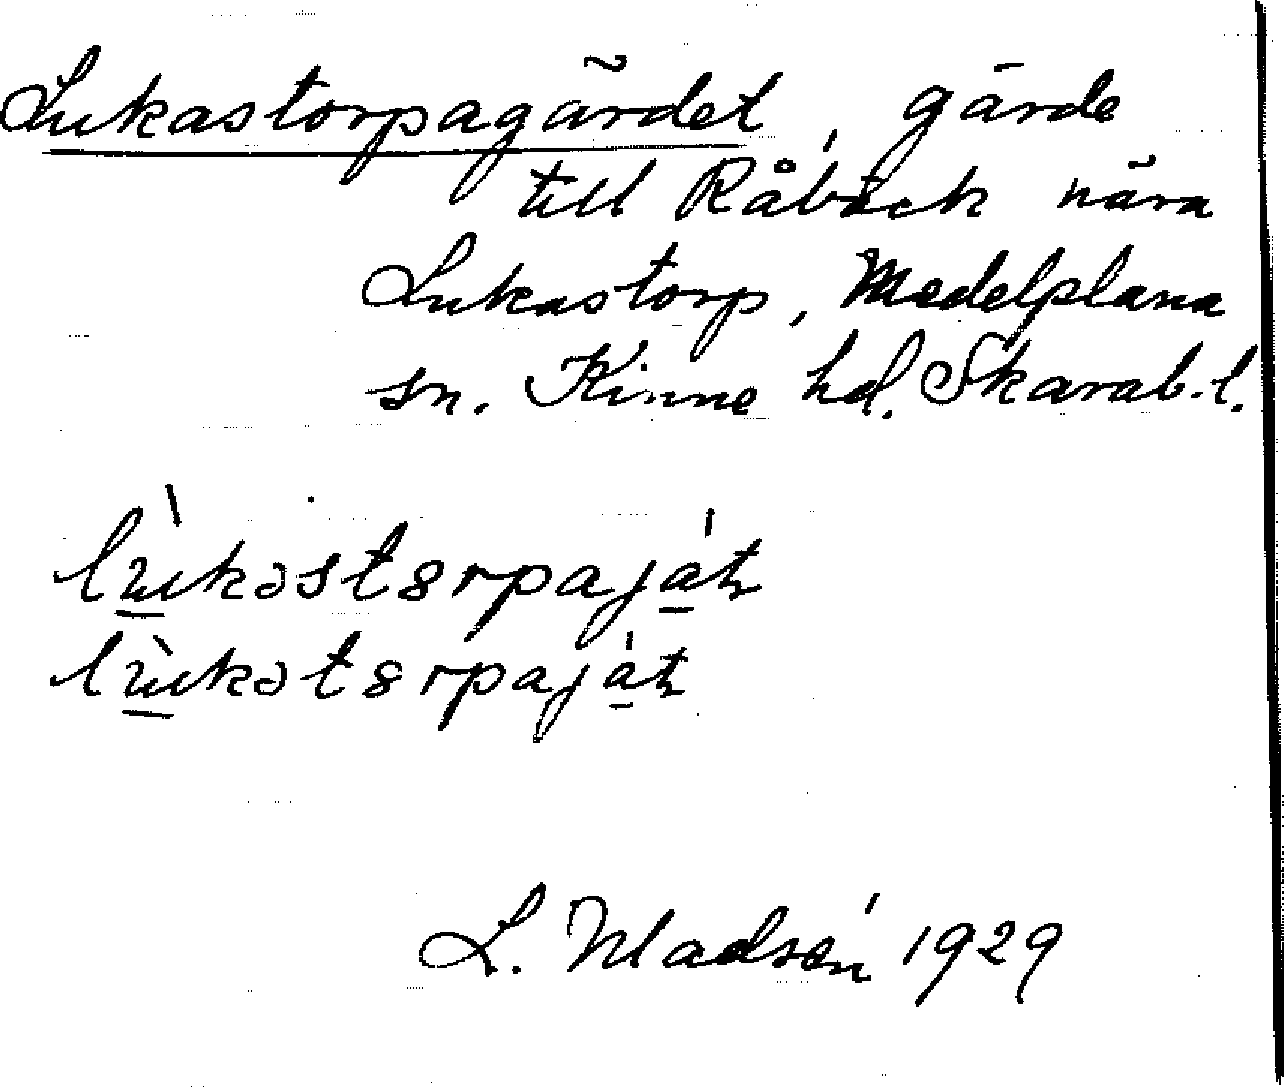 Lukastorpagärdet, gärde
till Råbäck nära
Lukastorp, Medelplana
sn. Kinne hd. Skarab. l.
L. Madsén 1929